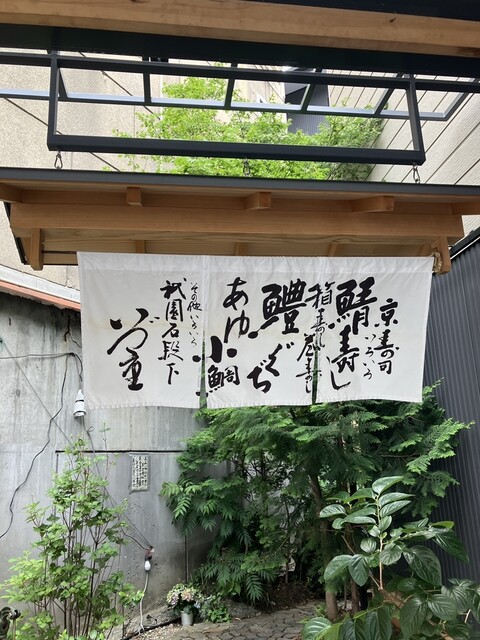 京寿司
いろいろ
鯖寿し
箱寿し
巻寿し
鱧
ぐぢ
あゆ
小鯛
その他いろいろ
祇園石段下
いづ重